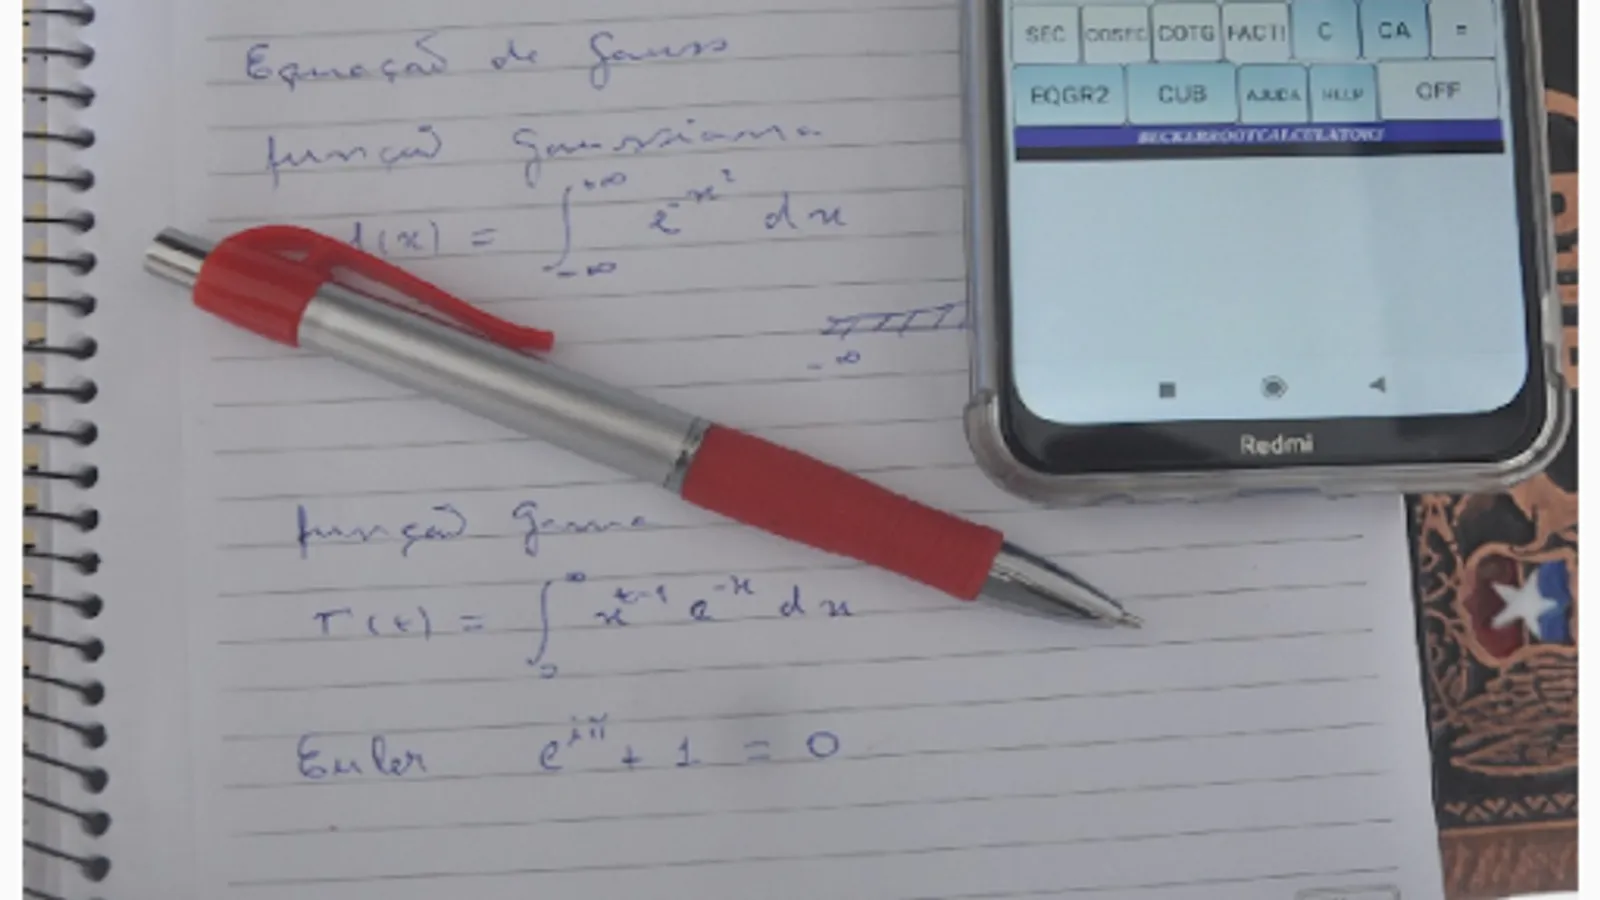 Equação de Gauss
função Gaussiana
f(x) = ∫_{-∞}^{+∞} e^{-x²} dx
-∞
função Gama
Γ(t) = ∫_{0}^{∞} x^{t-1} e^{-x} dx
Euler e^{iπ} + 1 = 0
SEC COSEC COTG FACT! C CA =
EQGR2 CUB AJUDA HELP OFF
Redmi